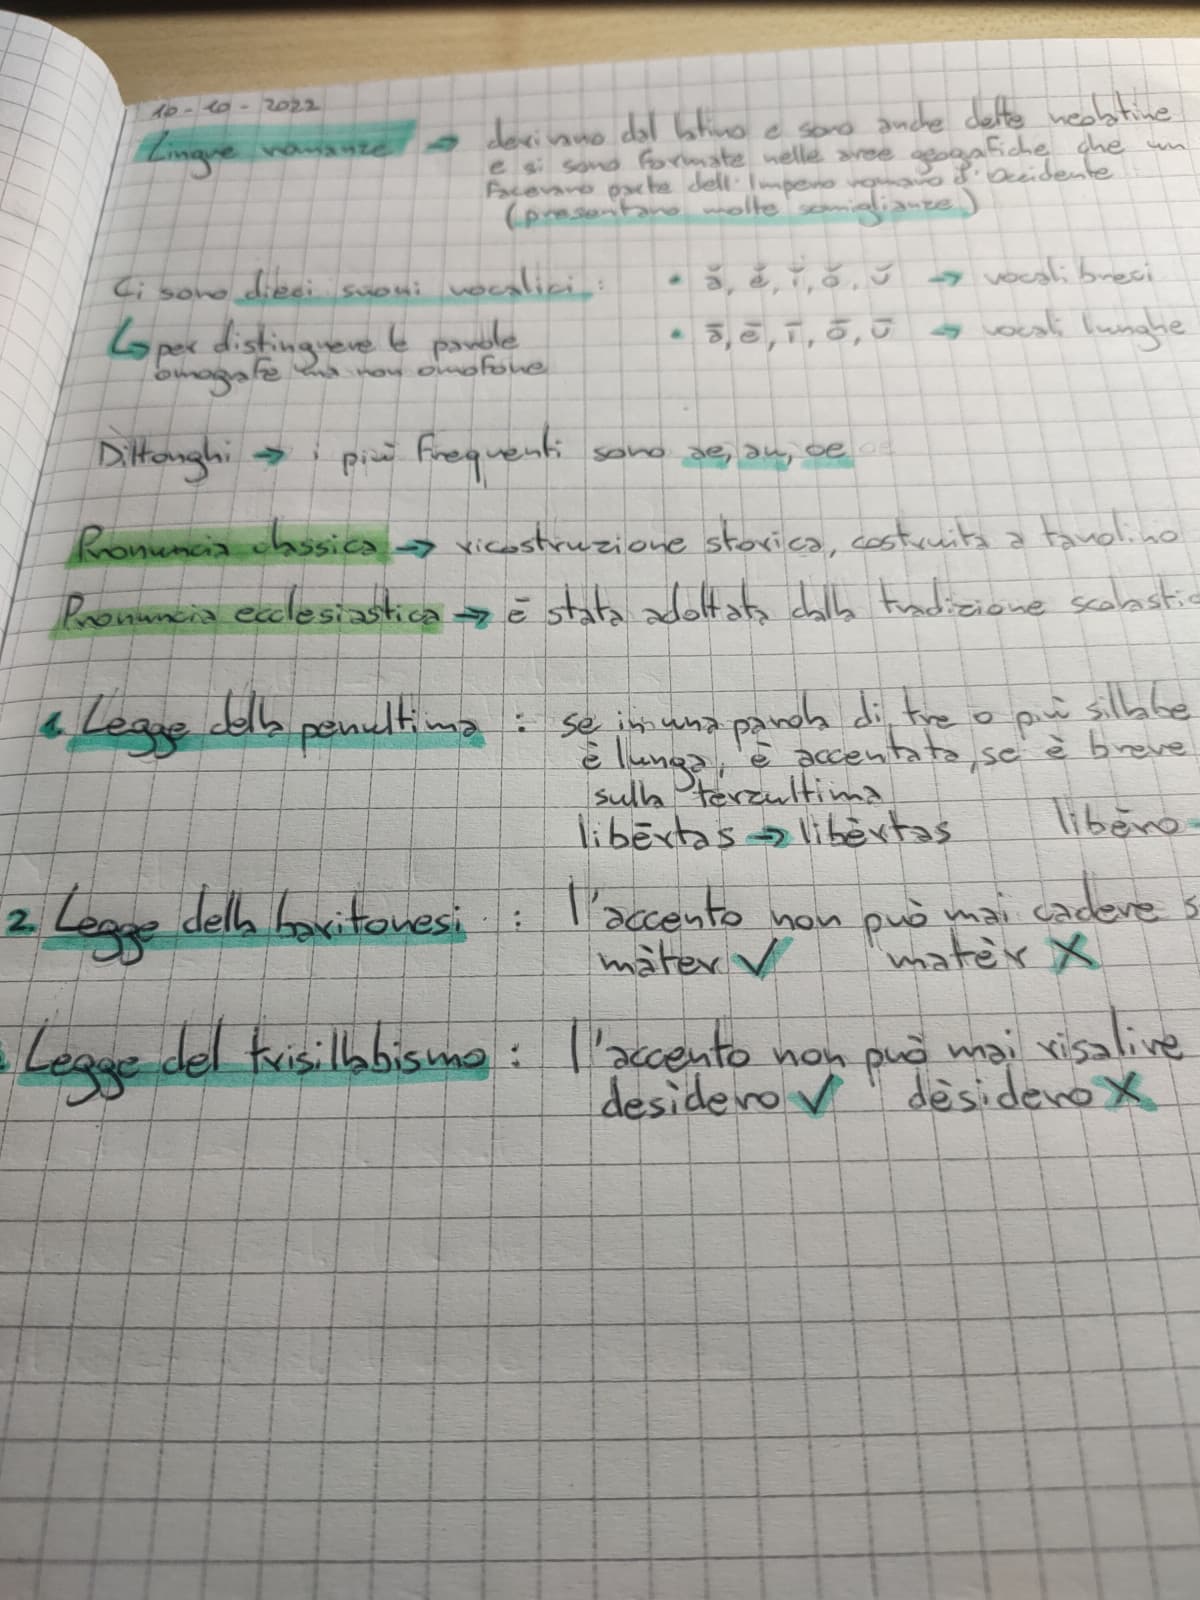 10-10-2022
Lingue romanze → derivano dal latino e sono anche dette neolatine
e si sono formate nelle aree geografiche che un
facevano parte dell'Impero romano d'Occidente
(presentano molte somiglianze)
Ci sono dieci suoni vocalici: • ă, ĕ, ĭ, ŏ, ŭ → vocali brevi
↳ per distinguere le parole • ā, ē, ī, ō, ū → vocali lunghe
omografe ma non omofone
Dittonghi → i più frequenti sono ae, au, oe
Pronuncia classica → ricostruzione storica, costruita a tavolino
Pronuncia ecclesiastica → è stata adottata dalla tradizione scolastic
1. Legge della penultima : se in una parola di tre o più sillabe
è lunga, è accentata, se è breve
sulla terzultima
libērtas → libèrtas libēro →
2. Legge della baritonesi : l'accento non può mai cadere s
màter ✓ matèr X
Legge del trisillabismo : l'accento non può mai risalire
desidero ✓ dèsidero X